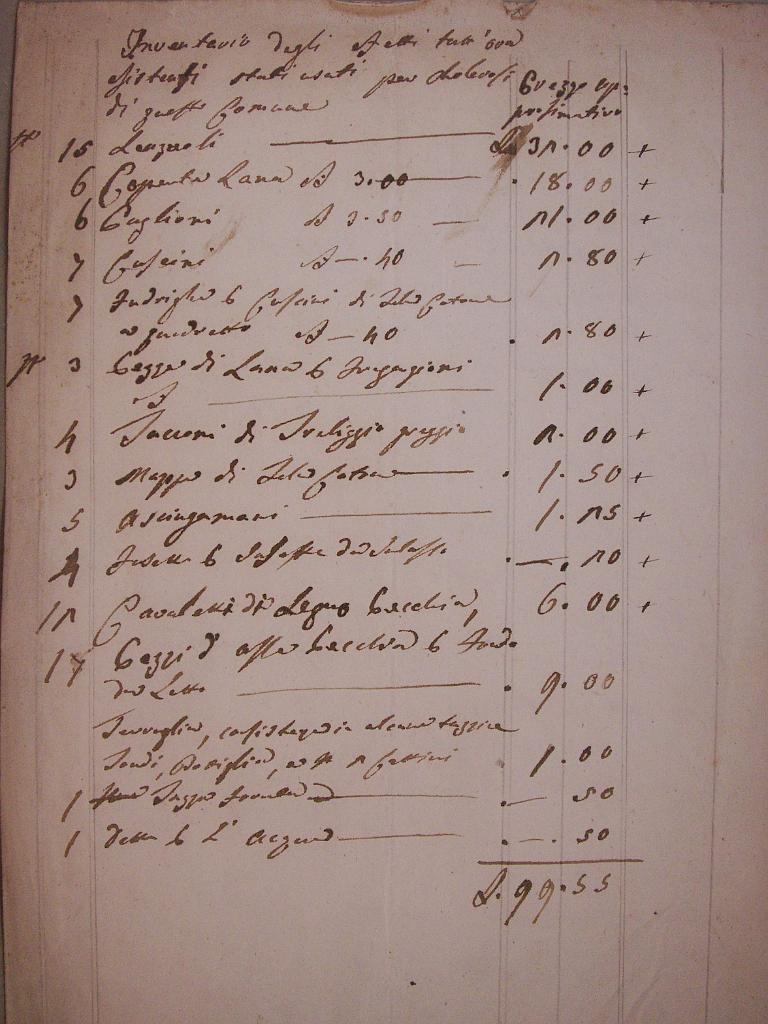 Inventario degli Effetti tutt'ora
esistenti stati usati per Colerosi
di questo Comune
Prezzo ap=
prossimativo
15 Lenzuoli L. 32.00 +
6 Coperte Lana à 3.00 18.00 +
6 Paglioni à 3.50 21.00 +
7 Cuscini à —.40 2.80 +
7 Fodrighe p Cuscini di Tela Cotone
a quadretto à —40 2.80 +
3 Pezze di Lana p Fregagioni
à 1.00 +
4 Sacconi di Treliggio greggio 2.00 +
3 Mappe di Tela Cotone 1.50 +
5 Asciugamani 1.25 +
4 p da Salasso —.20 +
12 Cavaletti di Legno Vecchia, 6.00 +
17 Pezzi d'asse Vecchia p Fondo
da Letto 9.00
Terraglia, consistente in alcune tazzine
Tondi, Bottiglia, e 2 Cattini 1.00
1 .— 50
1 Detta p l'acqua .—. 50
L. 99.55